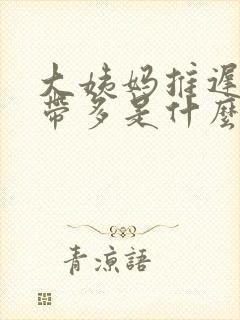 大姨妈推遲
帶多是什麼
青涼語